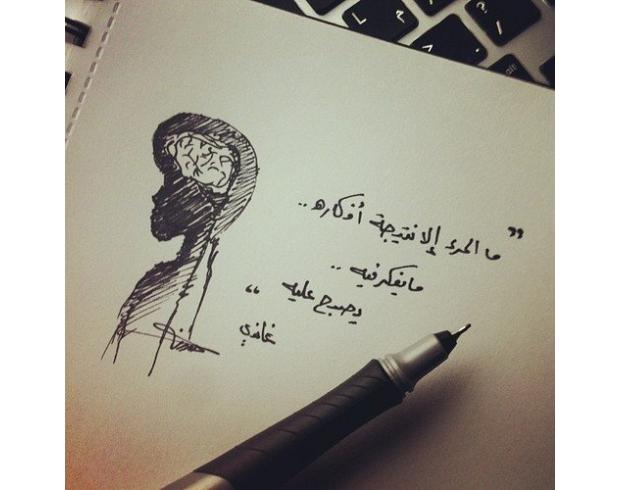 ” ما المرء إلا نتيجة أفكاره ..
ما يفكر فيه ..
يصبح عليه “
غاندي